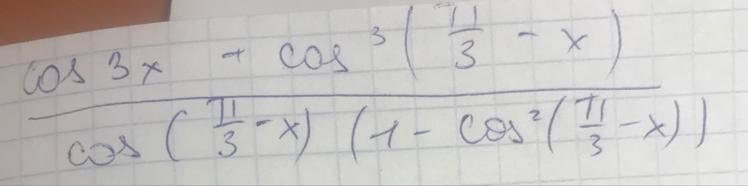 cos 3x + cos³(π/3 - x)
cos(π/3 - x) (1 - cos²(π/3 - x))